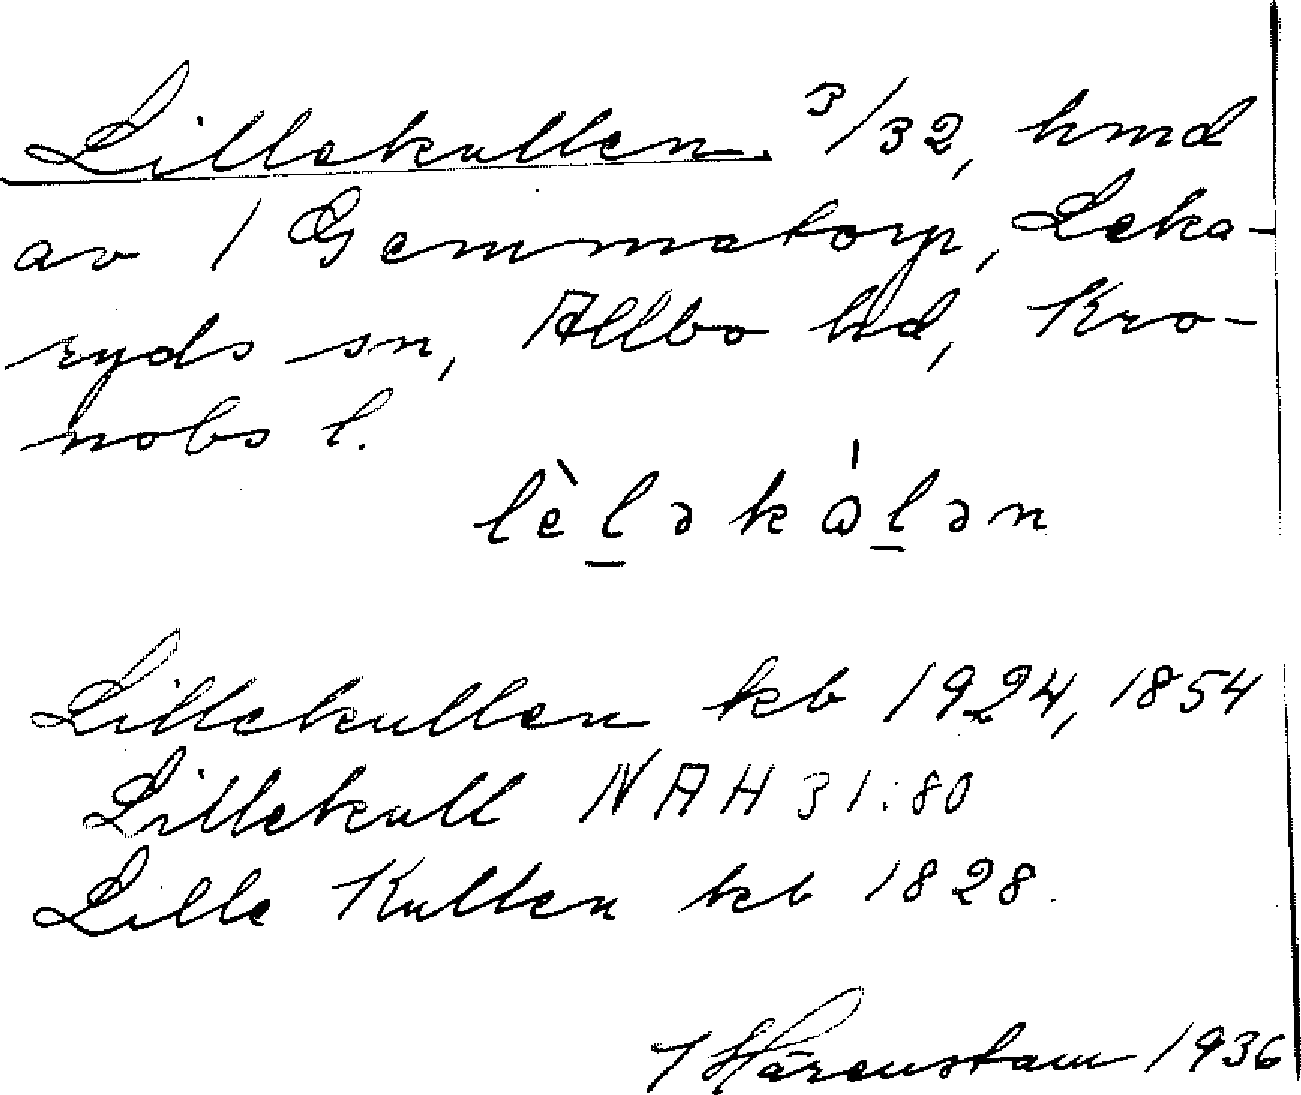 Lillekullen. 3/32, hmd
av 1 Gemmatorp, Leka-
ryds sn, Allbo hd, Kro-
nobs l.
lèl̲əkȧl̲ən
Lillekullen kb 1924, 1854
Lillekull NAH 31:80
Lille Kullen kb 1828.
Härenstam 1936